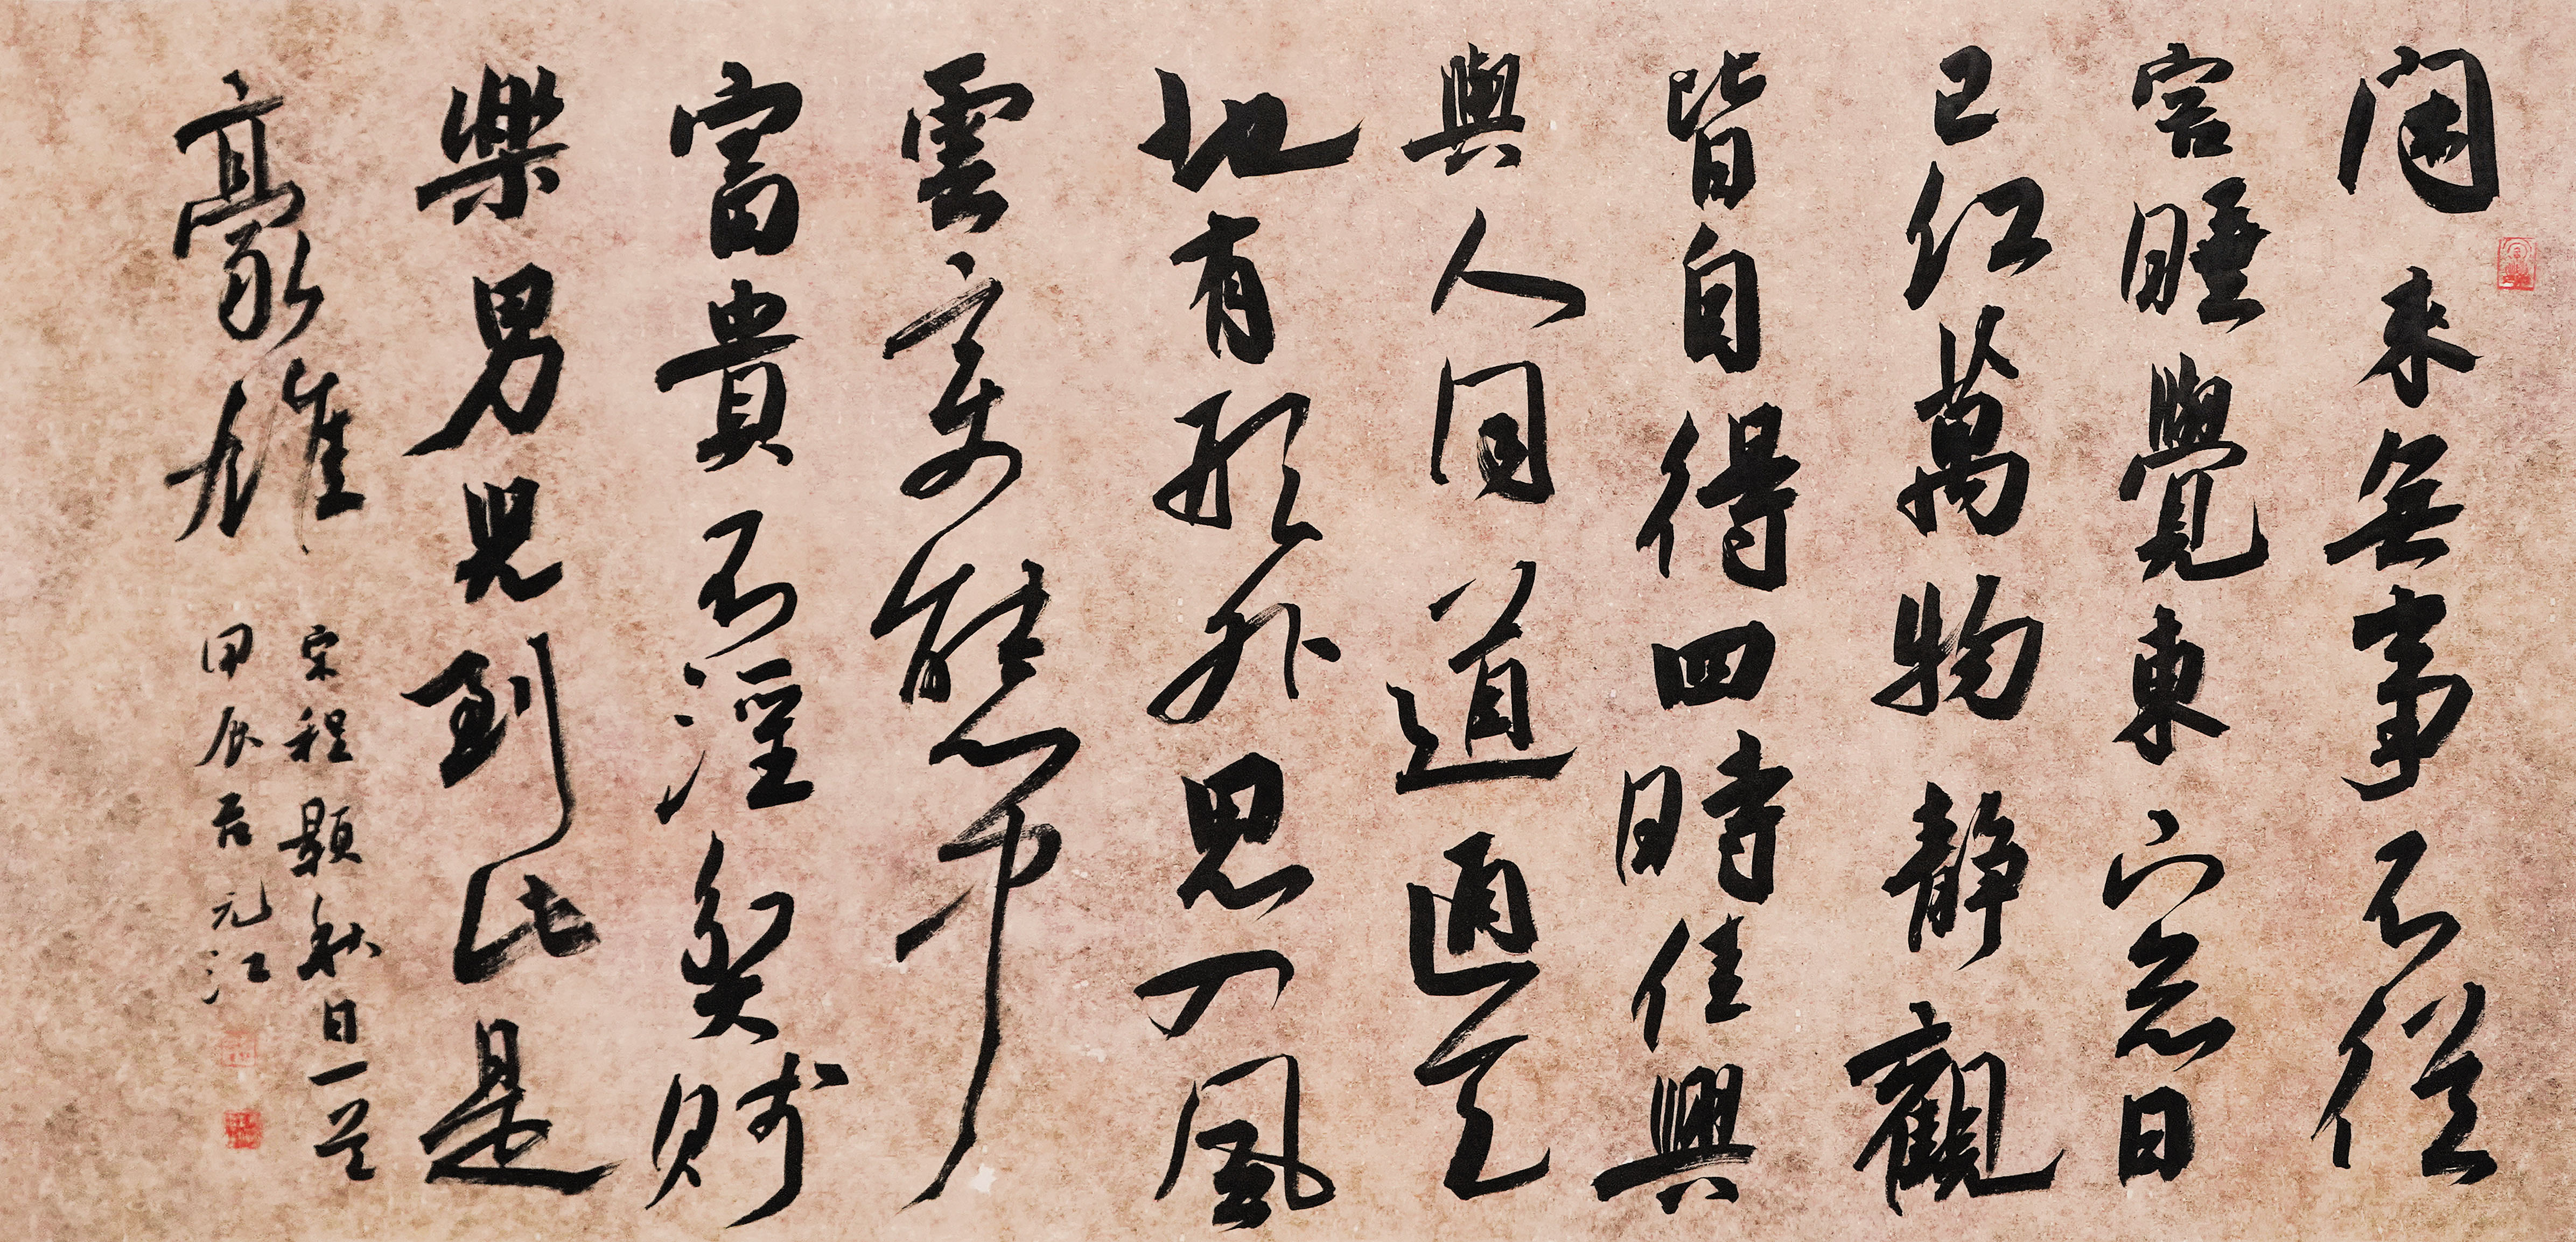 閑来無事不從
容睡覺東窗日
已紅萬物静觀
皆自得四時佳興
與人同道通天
地有形外思入風
雲變態中
富貴不淫貧賤
樂男兒到此是
豪雄
宋程顥秋日一首
甲辰元江